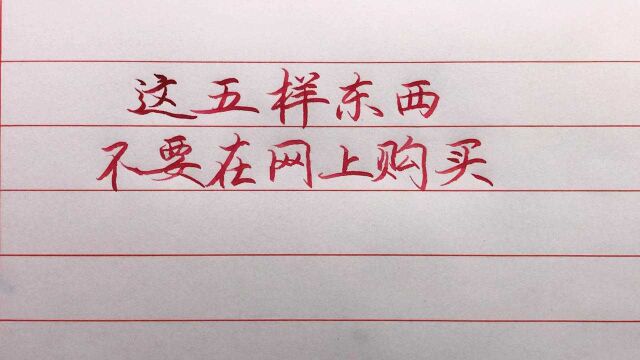 这五样东西
不要在网上购买